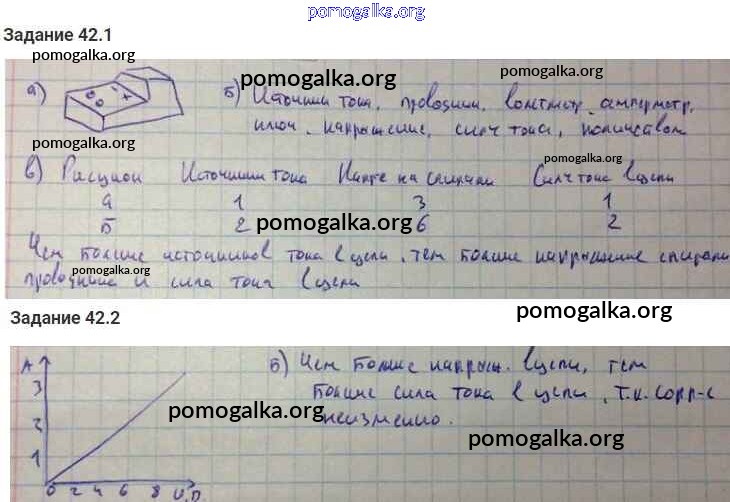 pomogalka.org
Задание 42.1
pomogalka.org
pomogalka.org
pomogalka.org
а)
б) Источники тока, проводники, вольтметр, амперметр,
pomogalka.org
ключ, напряжение, сила тока,
pomogalka.org
pomogalka.org
в) Рисунки Источники тока Напр на спирали Сила тока в цепи
pomogalka.org
а 1 3 1
Б 2 6 2
pomogalka.org
Чем больше источников тока в цепи, тем больше напряжение спирали
проводника и сила тока в цепи
pomogalka.org
pomogalka.org
Задание 42.2
А
3
2
1
0 2 4 6 8 U,
б) Чем больше напряж. в цепи, тем
больше сила тока в цепи, т.к. сопр-е
неизменно.
pomogalka.org
pomogalka.org